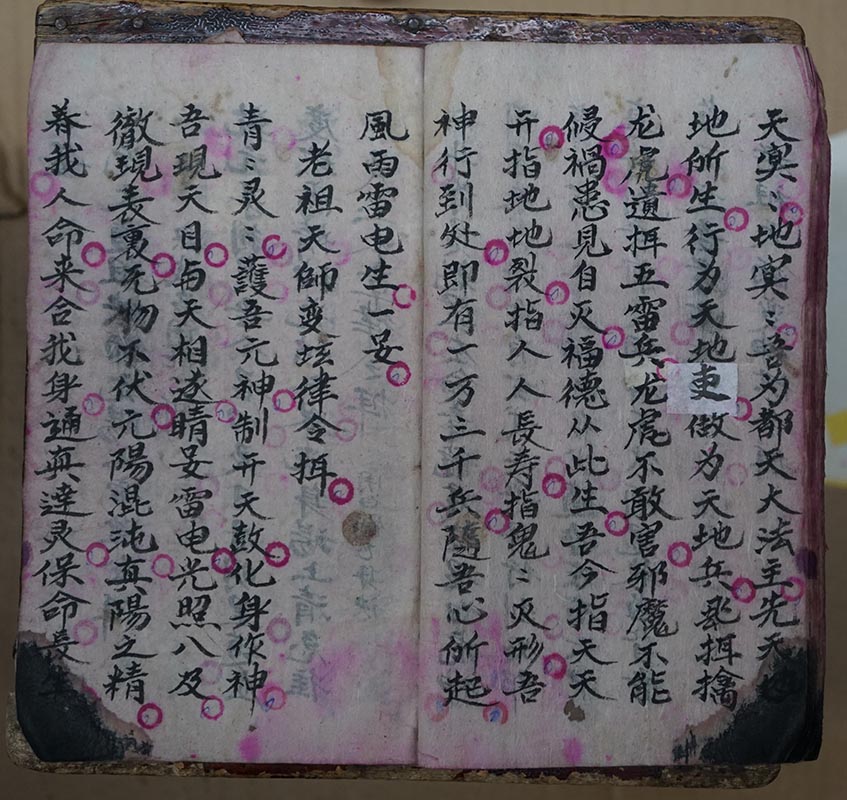 天冥〻地冥〻吾为都天大法主先天
地所生行为天地吏做为天地兵飛挕擒
龙虎遺挕五雷兵龙虎不敢害邪魔不能
侵禍患見自灭福德从此生吾今指天天
开指地地裂指人人長寿指鬼〻灭形吾
神行到处即有一万三千兵隨吾心所起
風雨雷电生一妟
老祖天師变坛律令挕
青〻灵〻護吾元神制开天鼓化身作神
吾現天目与天相逐睛妟雷电光照八及
徹現表裏无物不伏元陽混沌真陽之精
养我人命来合我身通真達灵保命長生